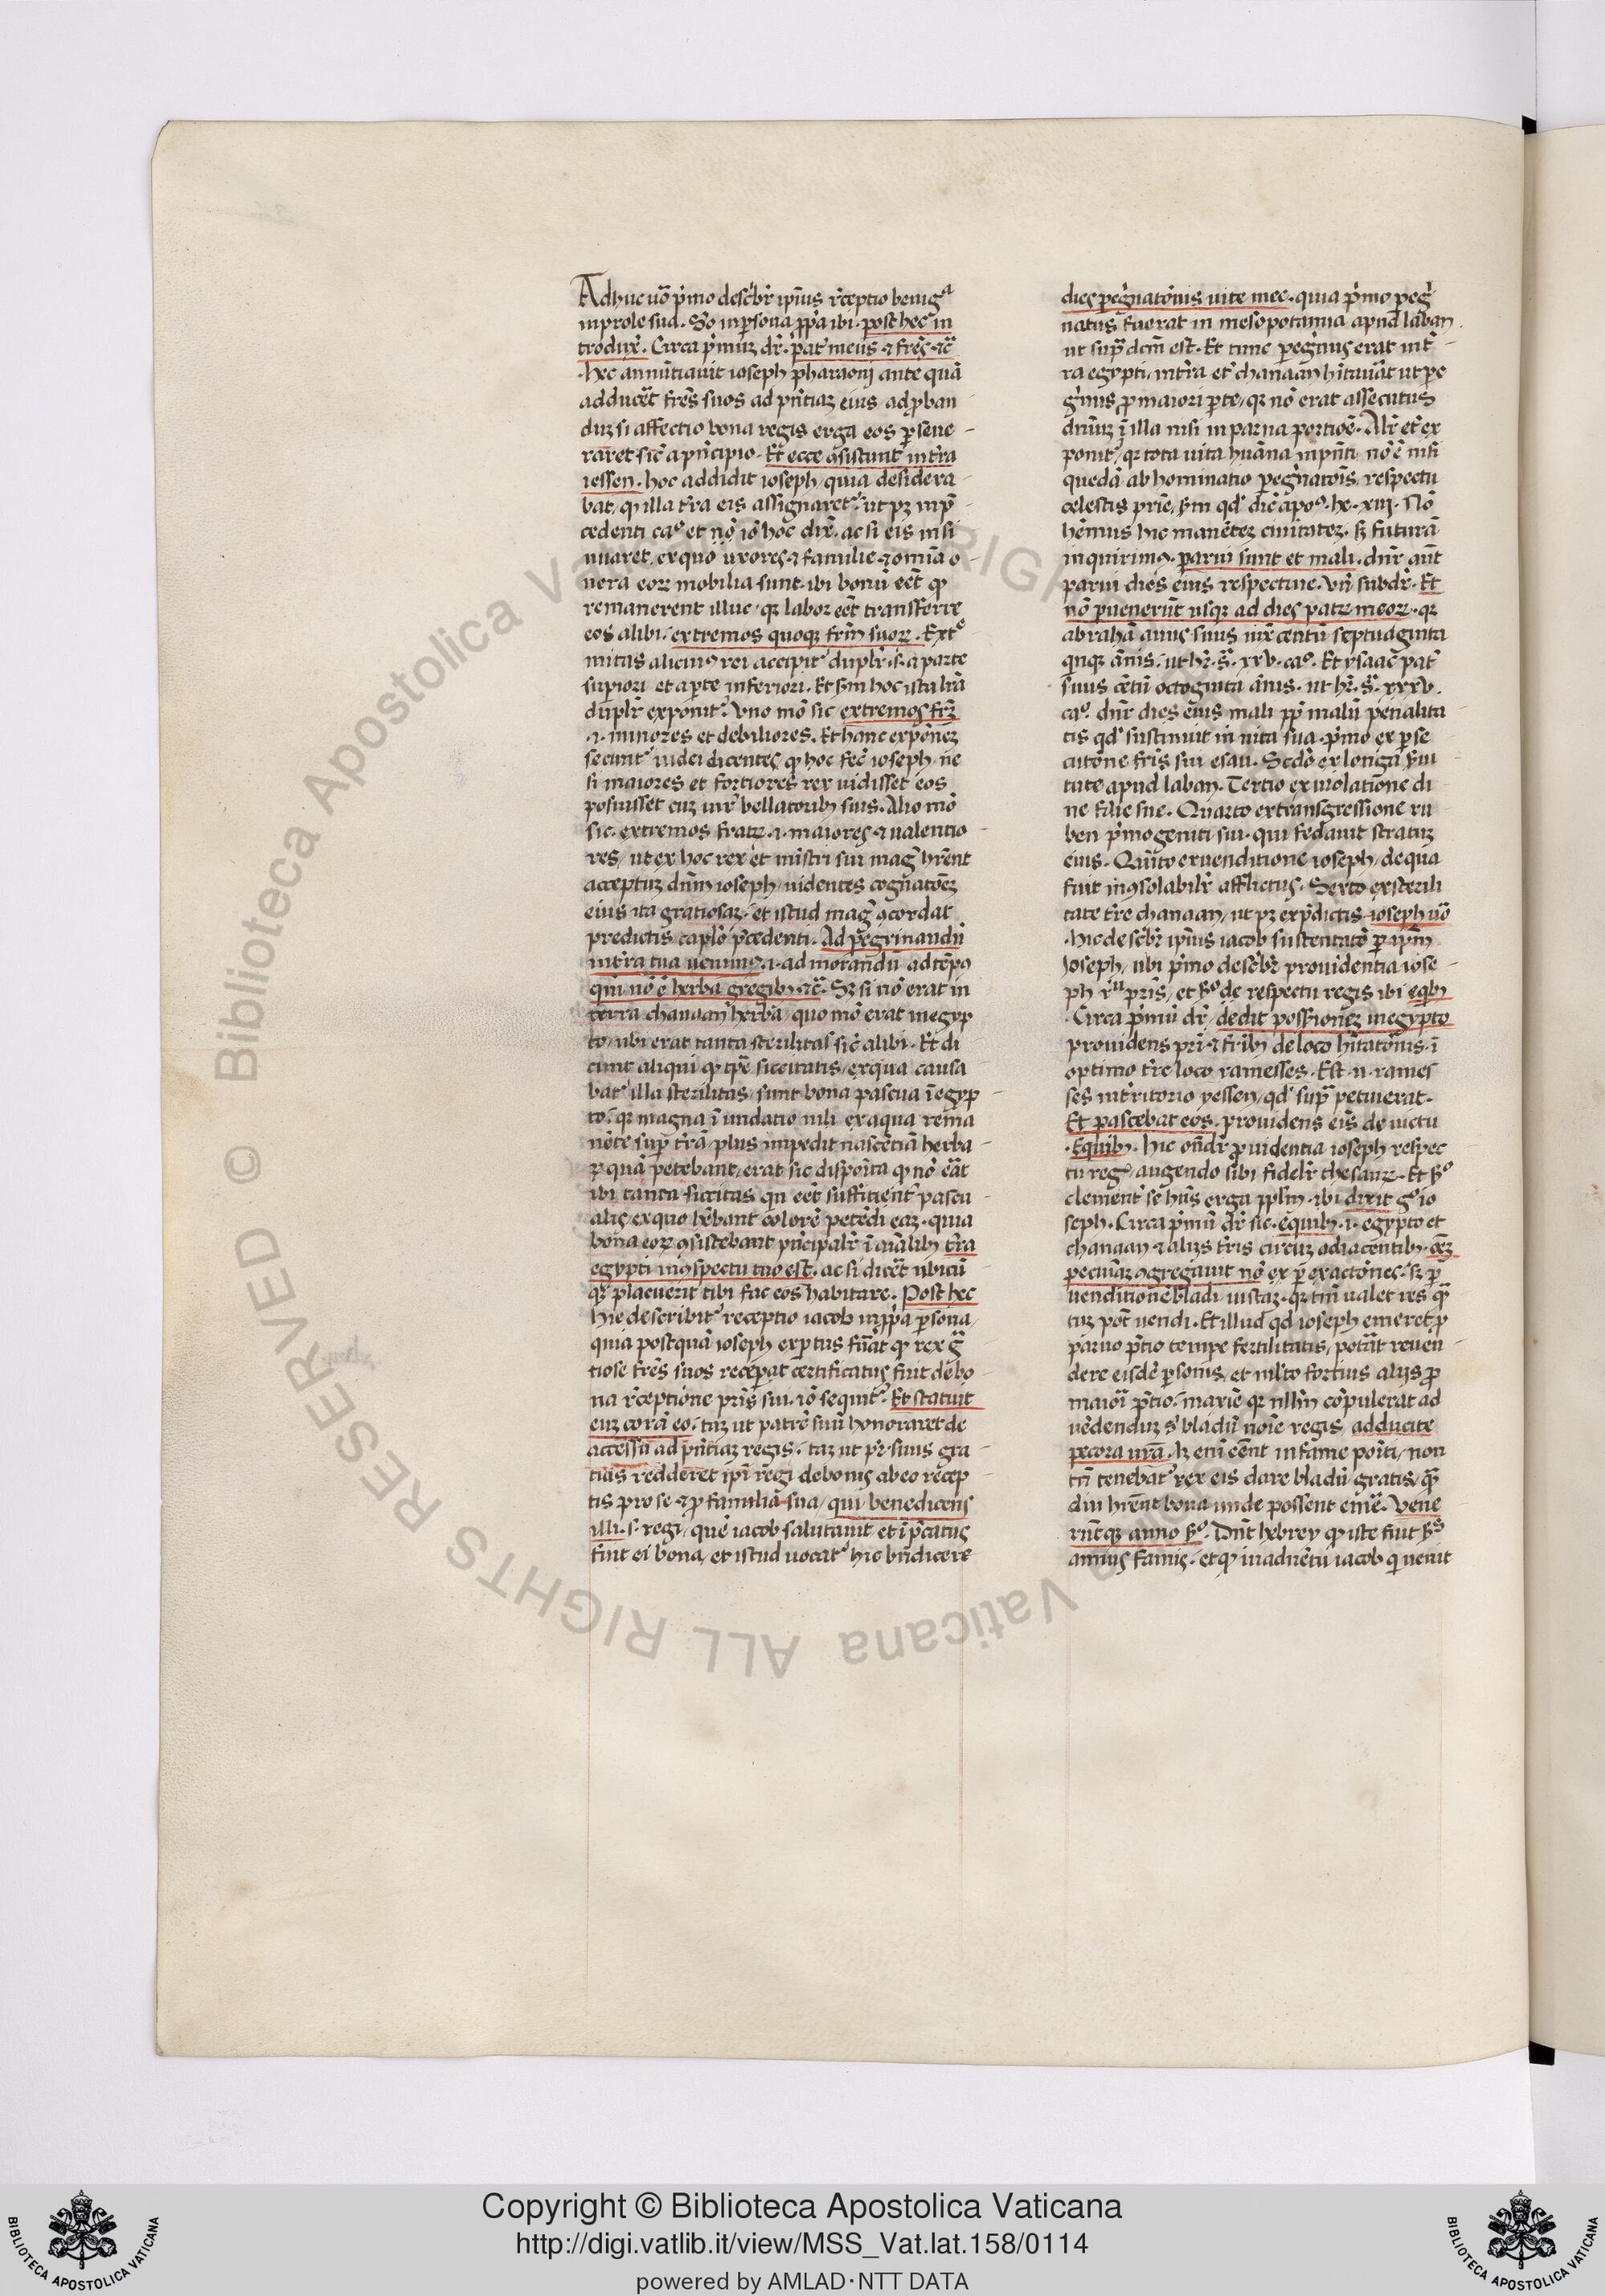 Adhuc uō p̄mo descͥbr̄ ipīus rͨceptio benigᵃ
in prole sua. So in ꝑsona ꝓpͥa ibi. post hec in
trodux̄. Circa p̄muꝫ dr̄. pat̄ meus ⁊ frēs ⁊c̄
hec annūtiauit ioseph pharaoni ante quā
adduceͤt frēs suos ad pn̄tiaꝫ eius, ad ꝓban
duꝫ si affectio bona regis erga eos ꝑseue
raret sic̄ a pͥncipio. Et ecce ꝯsistunt in tr̄a
iessen. hoc addidit ioseph, quia desidera
bat, ꝙ illa tr̄a eis assignaretᷣ. ut pꝫ in p̄
cedenti caº et nō iō hoc dix̄. ac si eis insi
nuaret, ex quo uxores ⁊ familie ⁊ omīa o
nera eoꝝ mobilia sunt. ibi bonū eēt ꝙ
remanerent illuc, qꝛ labor eēt transferre
eos alibi. extremos quoqꝫ frm̄ suoꝝ. Extͤ
mitas alicuiꝰ rei accipitᷣ duplr̄. s. a parte
supiori et a ꝑte inferiori. Et scd̄m hoc ista lrā
duplr̄ exponitᷣ. Uno mō sic extremos frꝫ
.i. minores et debiliores. Et hanc expōnez
secuntᷣ iudei dicentes ꝙ hoc fec̄ ioseph, ne
si maiores et fortiores rex uidisset eos
posuisset cuꝫ uir̄ bellatoribꝫ suis. Alio mō
sic. extremos fratꝝ .i. maiores ⁊ ualentio
res, ut ex hoc rex et mīstri sui magᷤ hrēnt
acceptuꝫ dn̄m ioseph, uidentes cognatōez
eius ita gratiosaꝫ. et istud magᷤ ꝯcordat
predictis caplō p̄cedenti. Ad ꝑegrinandū
in tr̄a tua uenimꝰ .i. ad morandū ad tēpꝰ
qm̄ nō ē herba gregibꝫ ⁊c̄. Sꝫ si nō erat in
terra chanaan herba, quo mō erat in egyp
to, ubi erat tanta sterilitas sic̄ alibi. Et di
cunt aliqui ꝙ tꝑe siccitatis, ex qua causa
batᷣ illa sterilitas, sunt bona pascua ī egyp
to. qꝛ magna īundatio nili, ex aqua rema
nēte supͣ tr̄ā plus impedit nascētiā herba
ꝝ quā petebant, erat sic dispoīta ꝙ nō eāt
ibi tanta siccitas qn̄ eēt sufficient̄ pascu
alis ex quo hēbant colorē petēdi eaꝫ. quia
bona eoꝝ ꝯsistebant pͥncipalr̄ ī aīalibꝫ tr̄a
egypti in ꝯspectu tuo est. ac si diceͤt ubicū
qꝫ placuerit tibi fac eos habitare. Post hec
hic describitᷣ receptio iacob in ꝓpͥa ꝑsona,
quia postquā ioseph exꝑtus fūat ꝙ rex gͣ
tiose frēs suos recepat certificatus fuit de bo
na rͨceptione pris̄ sui. iō sequitᷣ. Et statuit
euꝫ corā eo. tuꝫ ut patrē suū honoraret de
accessu ad pn̄tiaꝫ regis. tuꝫ ut pr̄ suus gra
tias redderet ipī regi de bonis ab eo recep
tis pro se ⁊ ꝓ familia sua, qui benedicens
illi. s. regi, quē iacob salutauit et īp̄catus
fuit ei bona, et istud uocatᷣ hic bn̄dicere
dies ꝑegͥnatōnis uite mee. quia p̄mo ꝑegͥ
natus fuerat in mesopotamia apud laban
ut supͣ dcm̄ est. Et tunc ꝑegͥnus erat in t̄
ra egypti, in tr̄a et̄ chanaan hītauāt ut ꝑe
gͥnus ꝓ maiori ꝑte, qꝛ nō erat assecutus
dn̄iuꝫ ī illa nisi in parua portioē. Alr̄ et̄ ex
ponitᷣ, qꝛ tota uita huāna in pn̄ti nō ē nisi
quedā abhominatio ꝑegͥnatōis, respectu
celestis pr̄ie, scd̄m qd̄ dic̄ apoᷤ. he. xiij. Nō
hēmus hic manētez ciuitatez. sꝫ futurā
inquirimꝰ. parui sunt et mali. dn̄r aūt
parui dies eius respectiue. Uñ subdr̄. Et
nō ꝑuenerūt usqꝫ ad dies patꝝ meoꝝ. qꝛ
abrahā auus suus uix̄ centū septuaginta
qnqꝫ ānis. ut hr̄. sͣ. xxv. caº. Et ysaac pat̄
suus cētū octoginta ānis. ut hr̄. sͣ. xxxv.
caº. dn̄r dies eius mali ꝓpͭ malū penalita
tis qd̄ sustinuit in uita sua. p̄mo ex ꝑse
cutōne fris̄ sui esau. Scd̄o ex longa ẜui
tute apud laban. Tertio ex uiolatiōne di
ne filie sue. Quarto ex transgressione ru
ben p̄mogeniti sui. qui fedauit stratuꝫ
eius. Quīto ex uenditione ioseph, de qua
fuit inꝯsolabilr̄ afflictus. Sexto ex sterili
tate tr̄re chanaan, ut pꝫ ex p̄dictis. ioseph uō
Hic descͥbr̄ ipīus iacob sustentatō ꝑ ipm̄
ioseph, ubi p̄mo descͥbr̄ prouidentia iose
ph rͧ pris̄, et scdͦ de respectu regis ibi eqͥbꝫ
Circa p̄mū dr̄, dedit possessionez in egypto
prouidens prī ⁊ frībꝫ de loco hītatōnis. ī
optimo tr̄re loco ramesses. Est .n. rames
ses in tr̄ritorio yessen, qd̄ supͣ petiuerat.
Et pascebat eos. prouidens eis̄ de uictu
Equibꝫ. Hic on̄dr̄ ꝓuidentia ioseph respec
tu regᷤ, augendo sibi fidelr̄ thesauꝝ. Et scdͦ
clement̄ se hn̄s erga ppl̄m. ibi dixit gͦ io
seph. Circa p̄mū dr̄ sic. equibꝫ. i. egypto et
chanaan ⁊ alijs tr̄ris circuꝫ adiacentibꝫ. oēꝫ
pecuiaꝫ ꝯgregauit nō ex p̄ exactōnes. sꝫ p̄
uenditionē bladi iustaꝫ. qꝛ tm̄ ualet res qͣꝫ
tuꝫ pōt uendi. Et illud qd̄ ioseph emeret ꝓ
paruo p̄tio tempe fertilitatis, potāt reuen
dere eisdē ꝑsonis, et ml̄to fortius alijs ꝓ
maiori p̄tio. maxiē qꝛ nll̄m cōpulerat ad
uēdenduꝫ sͥ bladū noīe regis, adducite
pecora urā. lꝫ enī eēnt in fame poīti, non
tn̄ tenebatᷣ rex eis dare bladū gratis, qͣꝫ
diu hrēnt bona unde possent emē. Uene
rūtqꝫ anno scdͦ. Dn̄t hebrei ꝙ iste fuit scdͥs
annus famis. et ꝙ in aduētu iacob qͥ uenit
Copyright © Biblioteca Apostolica Vaticana
http://digi.vatlib.it/view/MSS_Vat.lat.158/0114
powered by AMLAD·NTT DATA
BIBLIOTECA APOSTOLICA VATICANA
BIBLIOTECA APOSTOLICA VATICANA
© Biblioteca Apostolica Vaticana ALL RIGHTS RESERVED